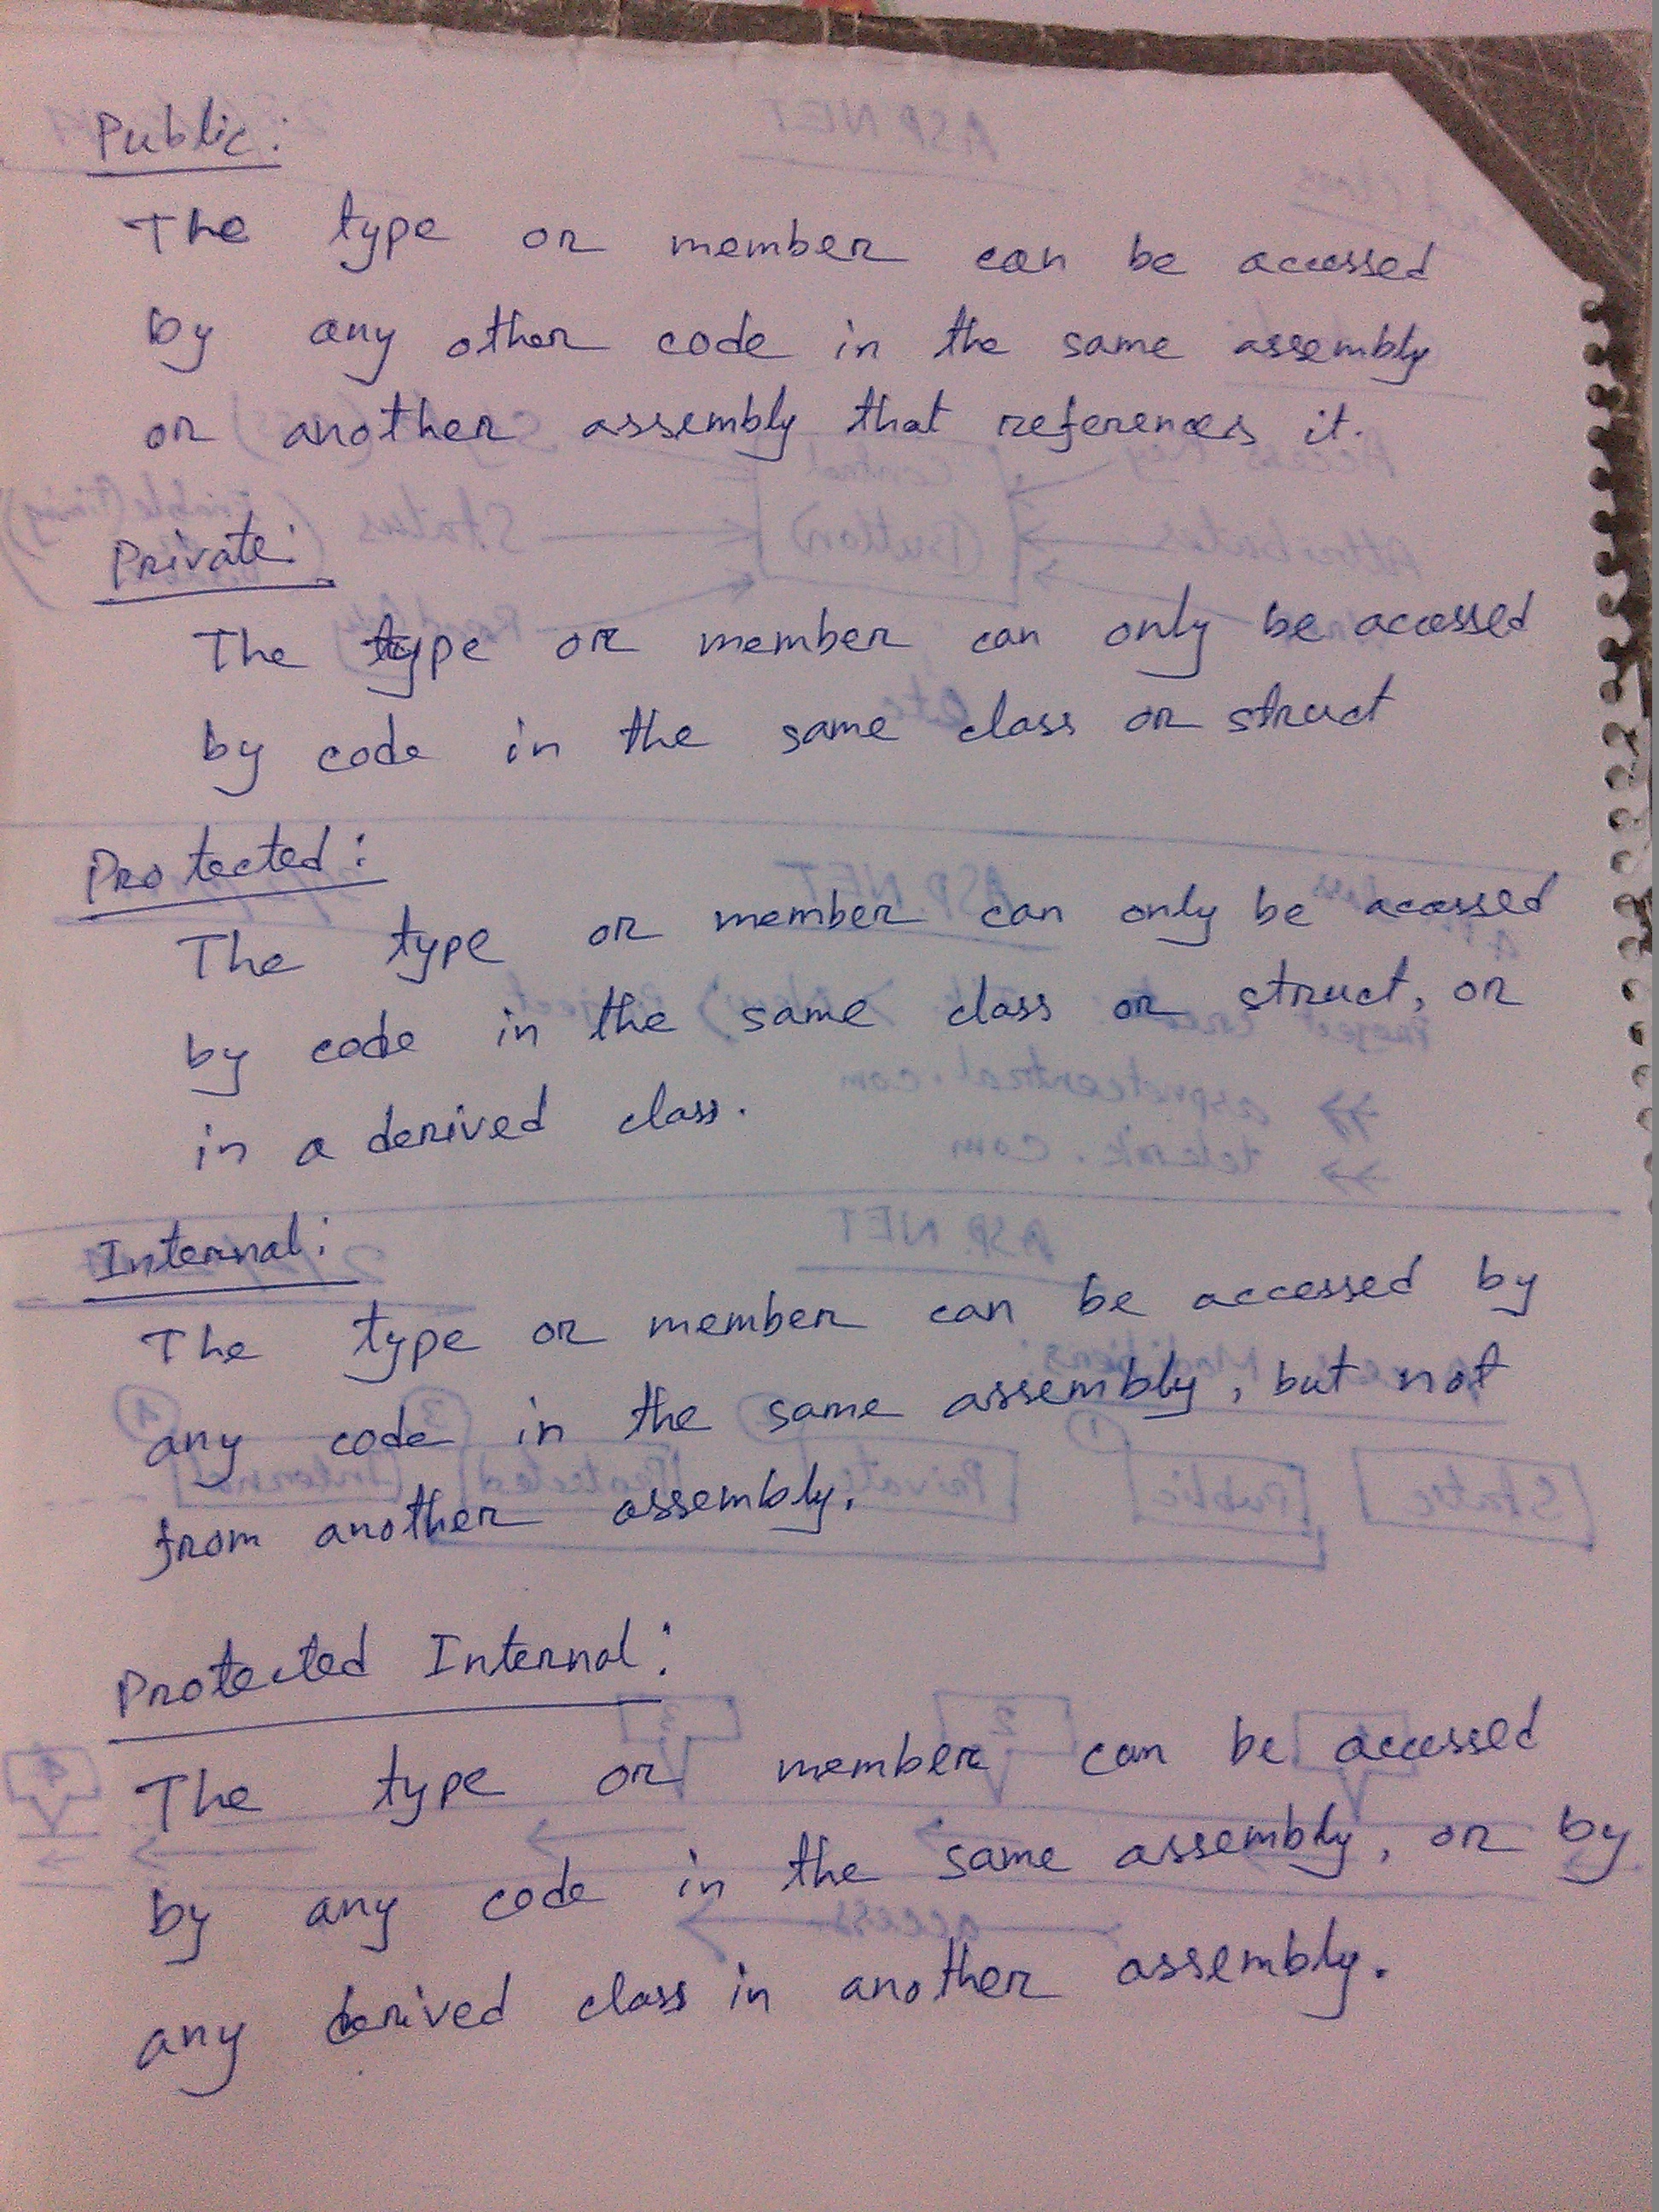 Public:
The type or member can be accessed
by any other code in the same assembly
or another assembly that references it.
Private:
The type or member can only be accessed
by code in the same class or struct
Protected:
The type or member can only be accessed
by code in the same class or struct, or
in a derived class.
Internal:
The type or member can be accessed by
any code in the same assembly, but not
from another assembly.
Protected Internal:
The type or member can be accessed
by any code in the same assembly, or by
any derived class in another assembly.